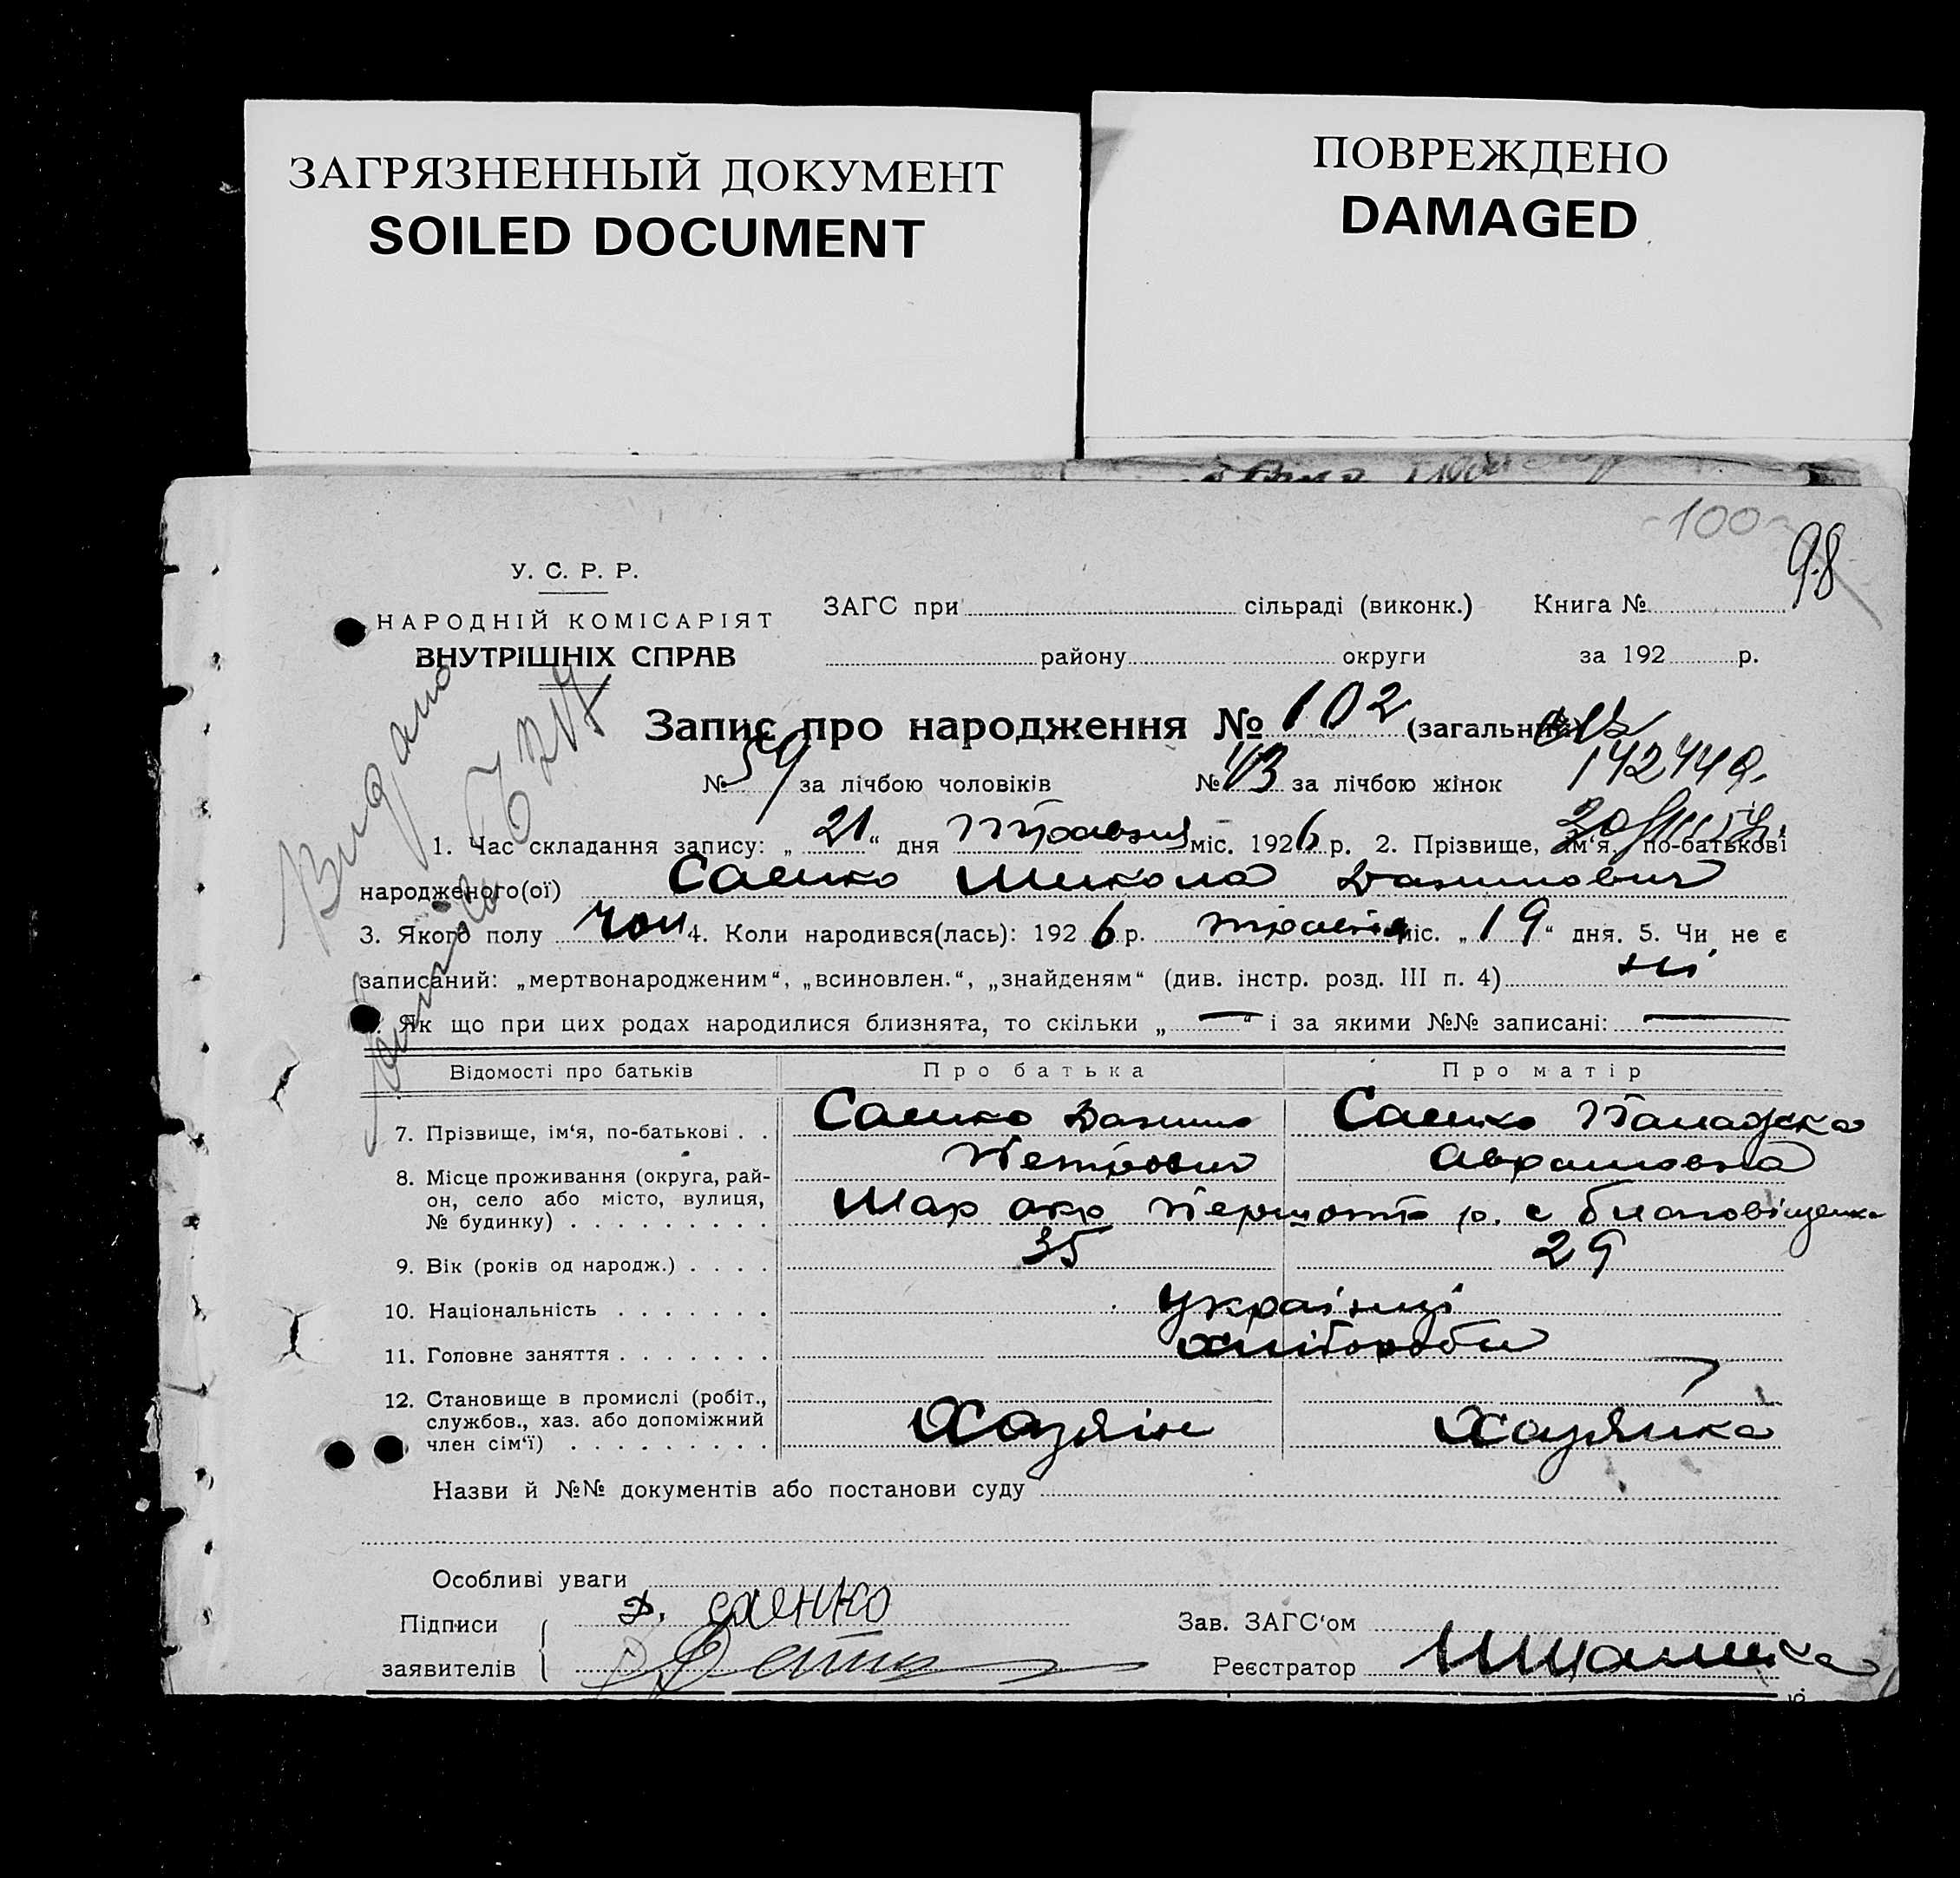 ЗАГРЯЗНЕННЫЙ ДОКУМЕНТ
SOILED DOCUMENT
ПОВРЕЖДЕНО
DAMAGED
100
98
У. С. Р. Р.
НАРОДНІЙ КОМІСАРІЯТ
ВНУТРІШНІХ СПРАВ
ЗАГС при сільраді (виконк.) Книга №
району округи за 192 р.
Видано
Запис про народження № 102 (загальний)
№ 59 за лічбою чоловіків № 43 за лічбою жінок
1. Час складання запису: „21“ дня травня міс. 1926 р. 2. Прізвище, ім'я, по-батькові
народженого(ої) Саенко Микола Данилович
3. Якого полу чол 4. Коли народився(лась): 1926 р. травня міс. „19“ дня. 5. Чи не є
записаний: „мертвонародженим“, „всиновлен.“, „знайденям“ (див. інстр. розд. III п. 4) ні
Як що при цих родах народилися близнята, то скільки „—“ і за якими №№ записані: —
Відомості про батьків Про батька Про матір
7. Прізвище, ім'я, по-батькові . . Саенко Данило Петрович Саенко Палажка Аврамовна
8. Місце проживання (округа, рай-
он, село або місто, вулиця,
№ будинку) . . . . . . . . . Мар окр р. с
9. Вік (років од народж.) . . . . 35 29
10. Національність . . . . . . . українці
11. Головне заняття . . . . . . . хлібороби
12. Становище в промислі (робіт.,
службов., хаз. або допоміжний
член сім'ї) . . . . . . . . . Хазяін Хазяйка
Назви й №№ документів або постанови суду
Особливі уваги
Підписи Д. саенко Зав. ЗАГС'ом
заявителів Реєстратор